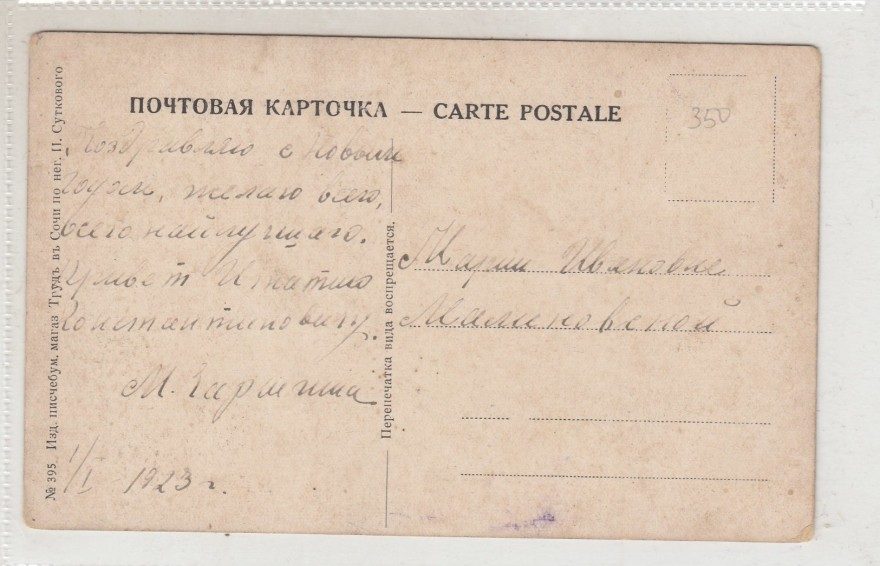 ПОЧТОВАЯ КАРТОЧКА — CARTE POSTALE
350
Поздравляю с новым
годом, желаю всего,
всего найлучшаго.
Привет Игнатию
Константиновичу.
М.
1/I 1923 г.
Марии Ивановне
Малиновской
Перепечатка вида воспрещается.
№ 395. Изд. писчебум. магаз Трудъ въ Сочи по нег. П. Суткового